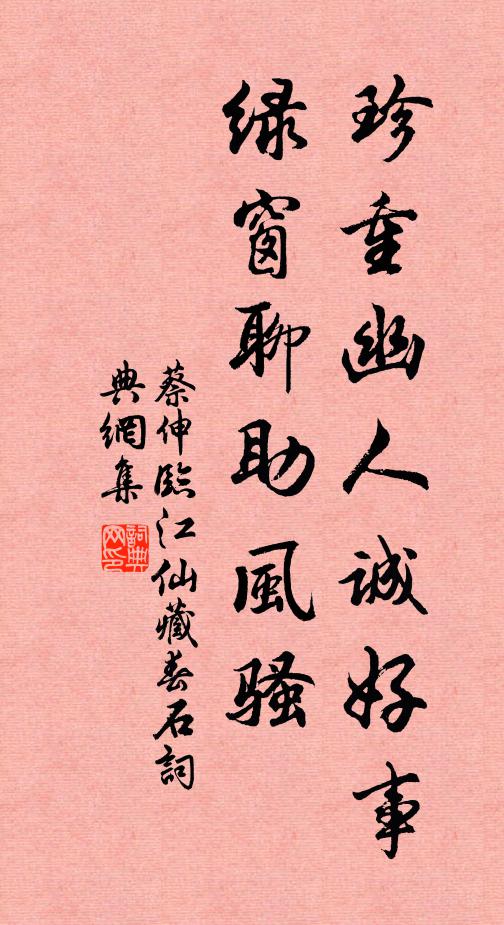 珍重幽人诚好事
绿窗聊助風騷
蔡伸臨江仙藏春石詞
典網集
詞典网印